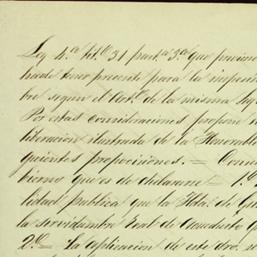 Ley 4.ª tit.º 31 part.ª 3.ª que previene
hade tener presente para la imposici
bre segun el Art.º de la misma ley
Por estas consideraciones propone
liberacion ilustrada de la Honorable
guientes proposiciones. = Comu
bierno que es de declararse = 1.º
lidad publica que la Hda. de
la servidumbre Real de Acueducto
2.º = La aplicacion de este dro. se